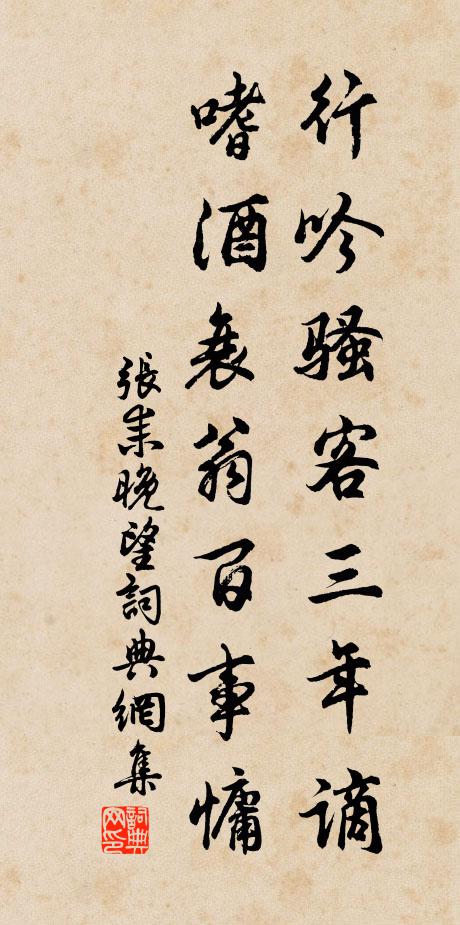 行吟騷客三年謫
嗜酒衰翁百事慵
張耒晚望詞典網集
詞典网印